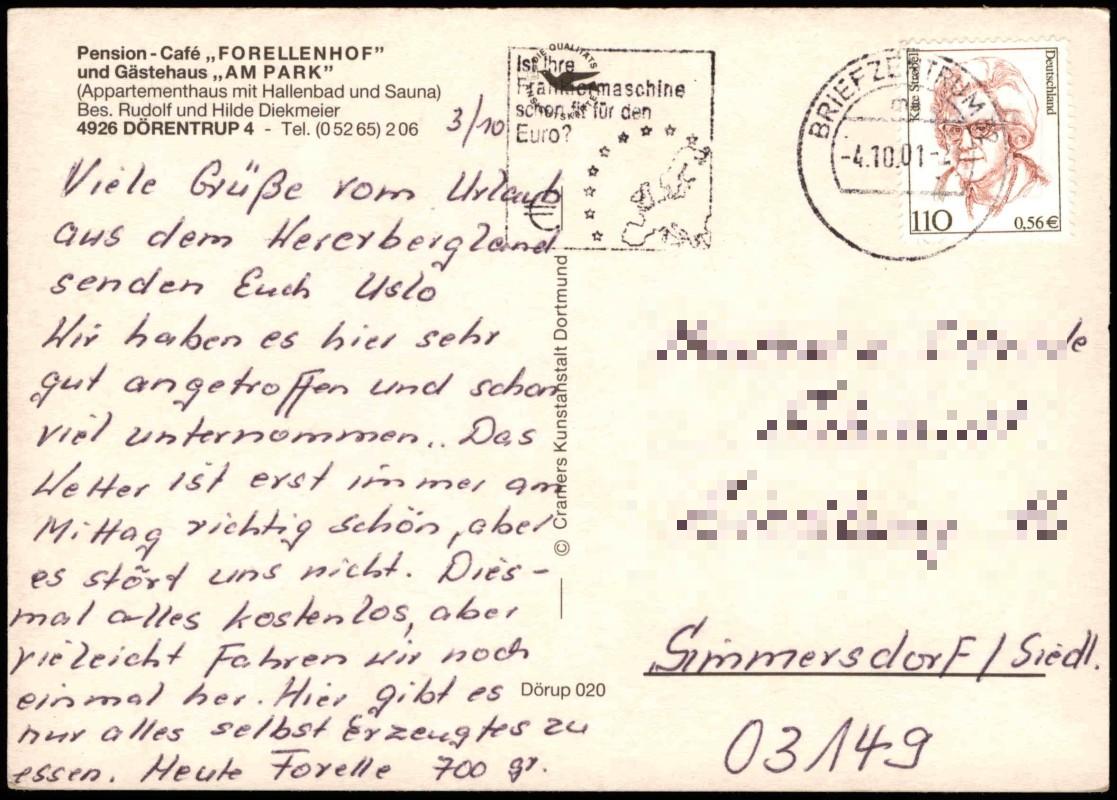 Pension-Café „FORELLENHOF”
und Gästehaus „AM PARK”
(Appartementhaus mit Hallenbad und Sauna)
Bes. Rudolf und Hilde Diekmeier
4926 DÖRENTRUP 4 - Tel. (0 52 65) 2 06
3/10
Viele Grüße vom Urlaub
aus dem Wererbergland
senden Euch Uslo
Wir haben es hier sehr
gut angetroffen und schon
viel unternommen.. Das
Wetter ist erst immer am
Mittag richtig schön, aber
es stört uns nicht. Dies-
mal alles kostenlos, aber
vieleicht Fahren wir noch
einmal her. Hier gibt es
nur alles selbst Erzeugtes zu
essen. Heute Forelle 700 gr.
© Cramers Kunstanstalt Dortmund
Dörup 020
Ist Ihre
Frankiermaschine
schon fit für den
Euro?
€
BRIEFZENTRUM
-4.10.01-
Deutschland
110
0,56 €
Simmersdorf / Siedl.
03149